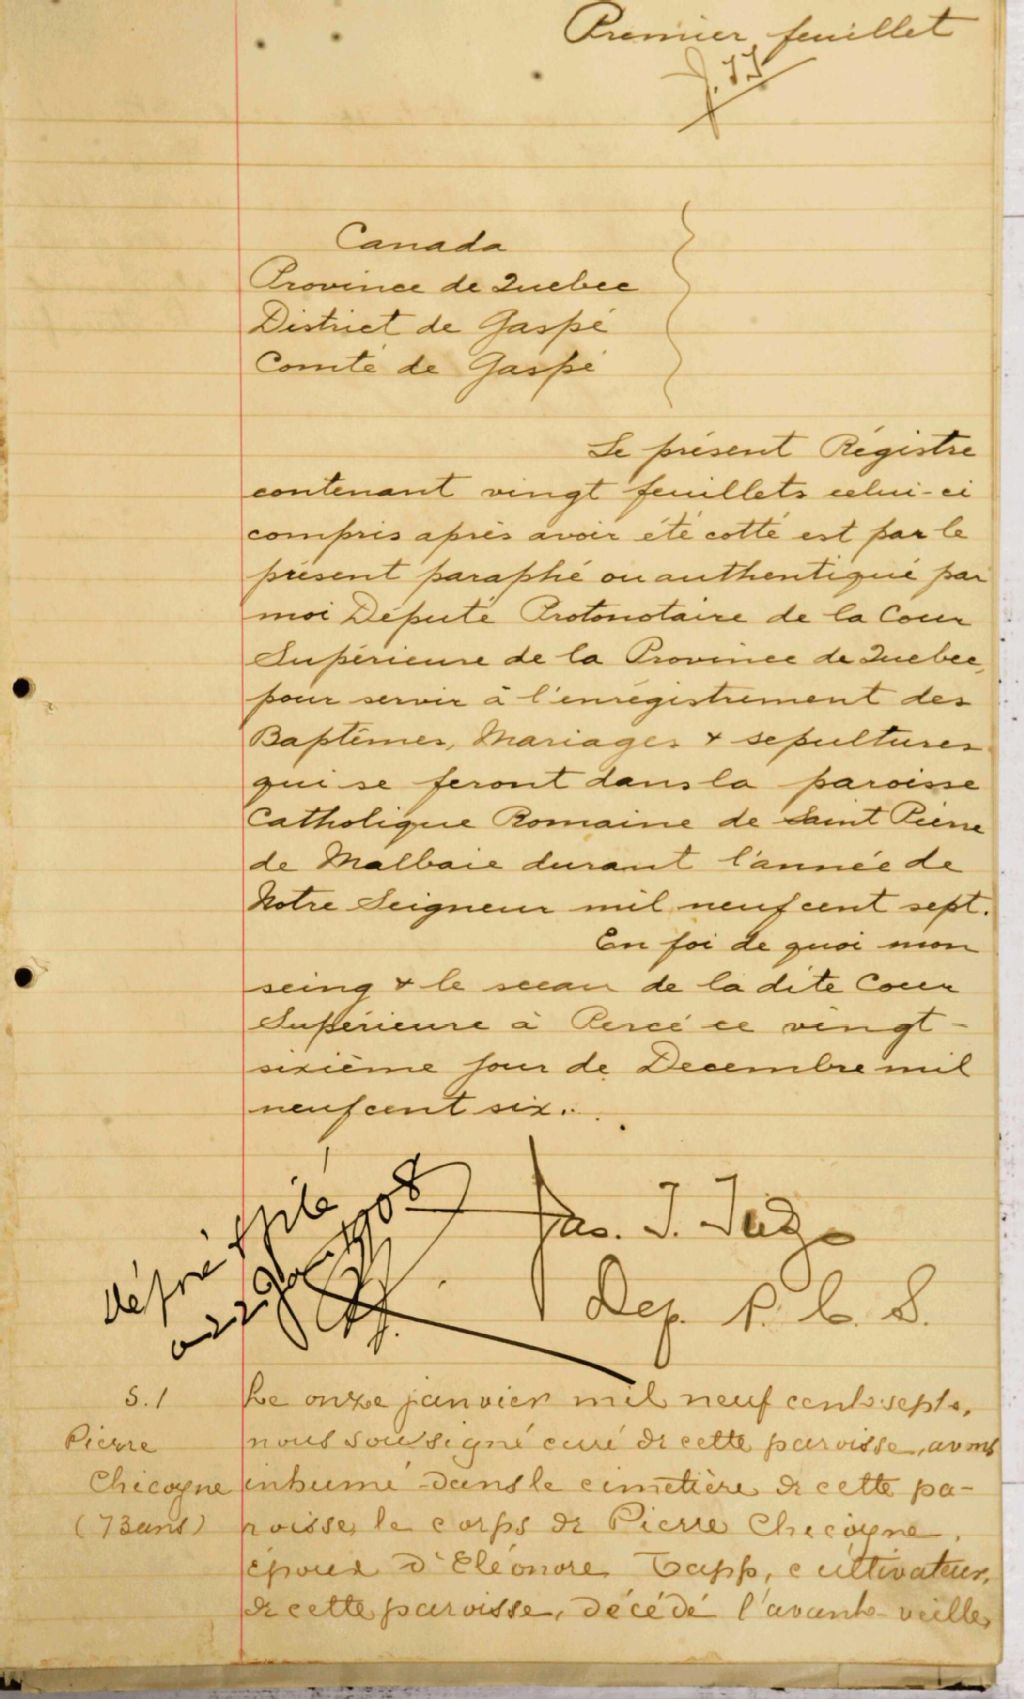 Premier feuillet
J. J. J
Canada
Province de Quebec
District de Gaspé
Comté de Gaspé
Le présent Régistre
contenant vingt feuillets celui-ci
compris après avoir été cotté est par le
présent paraphé ou authentiqué par
moi Député Protonotaire de la Cour
Supérieure de la Province de Quebec,
pour servir à l'enrégistrement des
Baptêmes, Mariages & sepultures
qui se feront dans la paroisse
Catholique Romaine de Saint Pierre
de Malbaie durant l'année de
Notre Seigneur mil neuf cent sept.
En foi de quoi mon
seing & le sceau de la dite Cour
Supérieure à Percé ce vingt-
sixième jour de Decembre mil
neuf cent six.
Jas. J.
Dep. P. C. S.
1908
S.1
Pierre
Chicoyne
(73 ans)
Le onze janvier mil neuf cent sept,
nous soussigné curé de cette paroisse, avons
inhumé dans le cimetière de cette pa-
roisse, le corps de Pierre Chicoyne,
époux d'Eléonore Tapp, cultivateur,
de cette paroisse, décédé l'avant-veille,